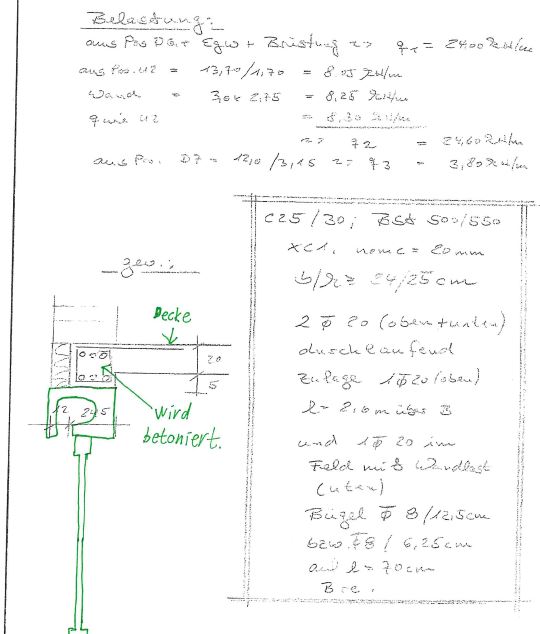 Belastung:
aus Pos DG + Egw + Brüstung => q1 = 24,00 kN/m
aus Pos. U2 = 13,70/1,70 = 8,05 kN/m
Wand = 3,0 x 2,75 = 8,25 kN/m
U2 = 8,30 kN/m
=> q2 = 24,60 kN/m
aus Pos. D7 = 12,0/3,15 => q3 = 3,80 kN/m
C25/30; BSt 500/550
XC1, nom c = 20mm
b/h = 24/25cm
2 Φ 20 (oben+unten)
durchlaufend
Zulage 1 Φ 20 (oben)
l = 2,0m über B
und 1 Φ 20 im
Feld mit Wandlast
(unten)
Bügel Φ 8/12,5cm
bzw. Φ8 / 6,25cm
auf l = 70cm
gew.:
Decke
20
5
wird
betoniert.
12
245